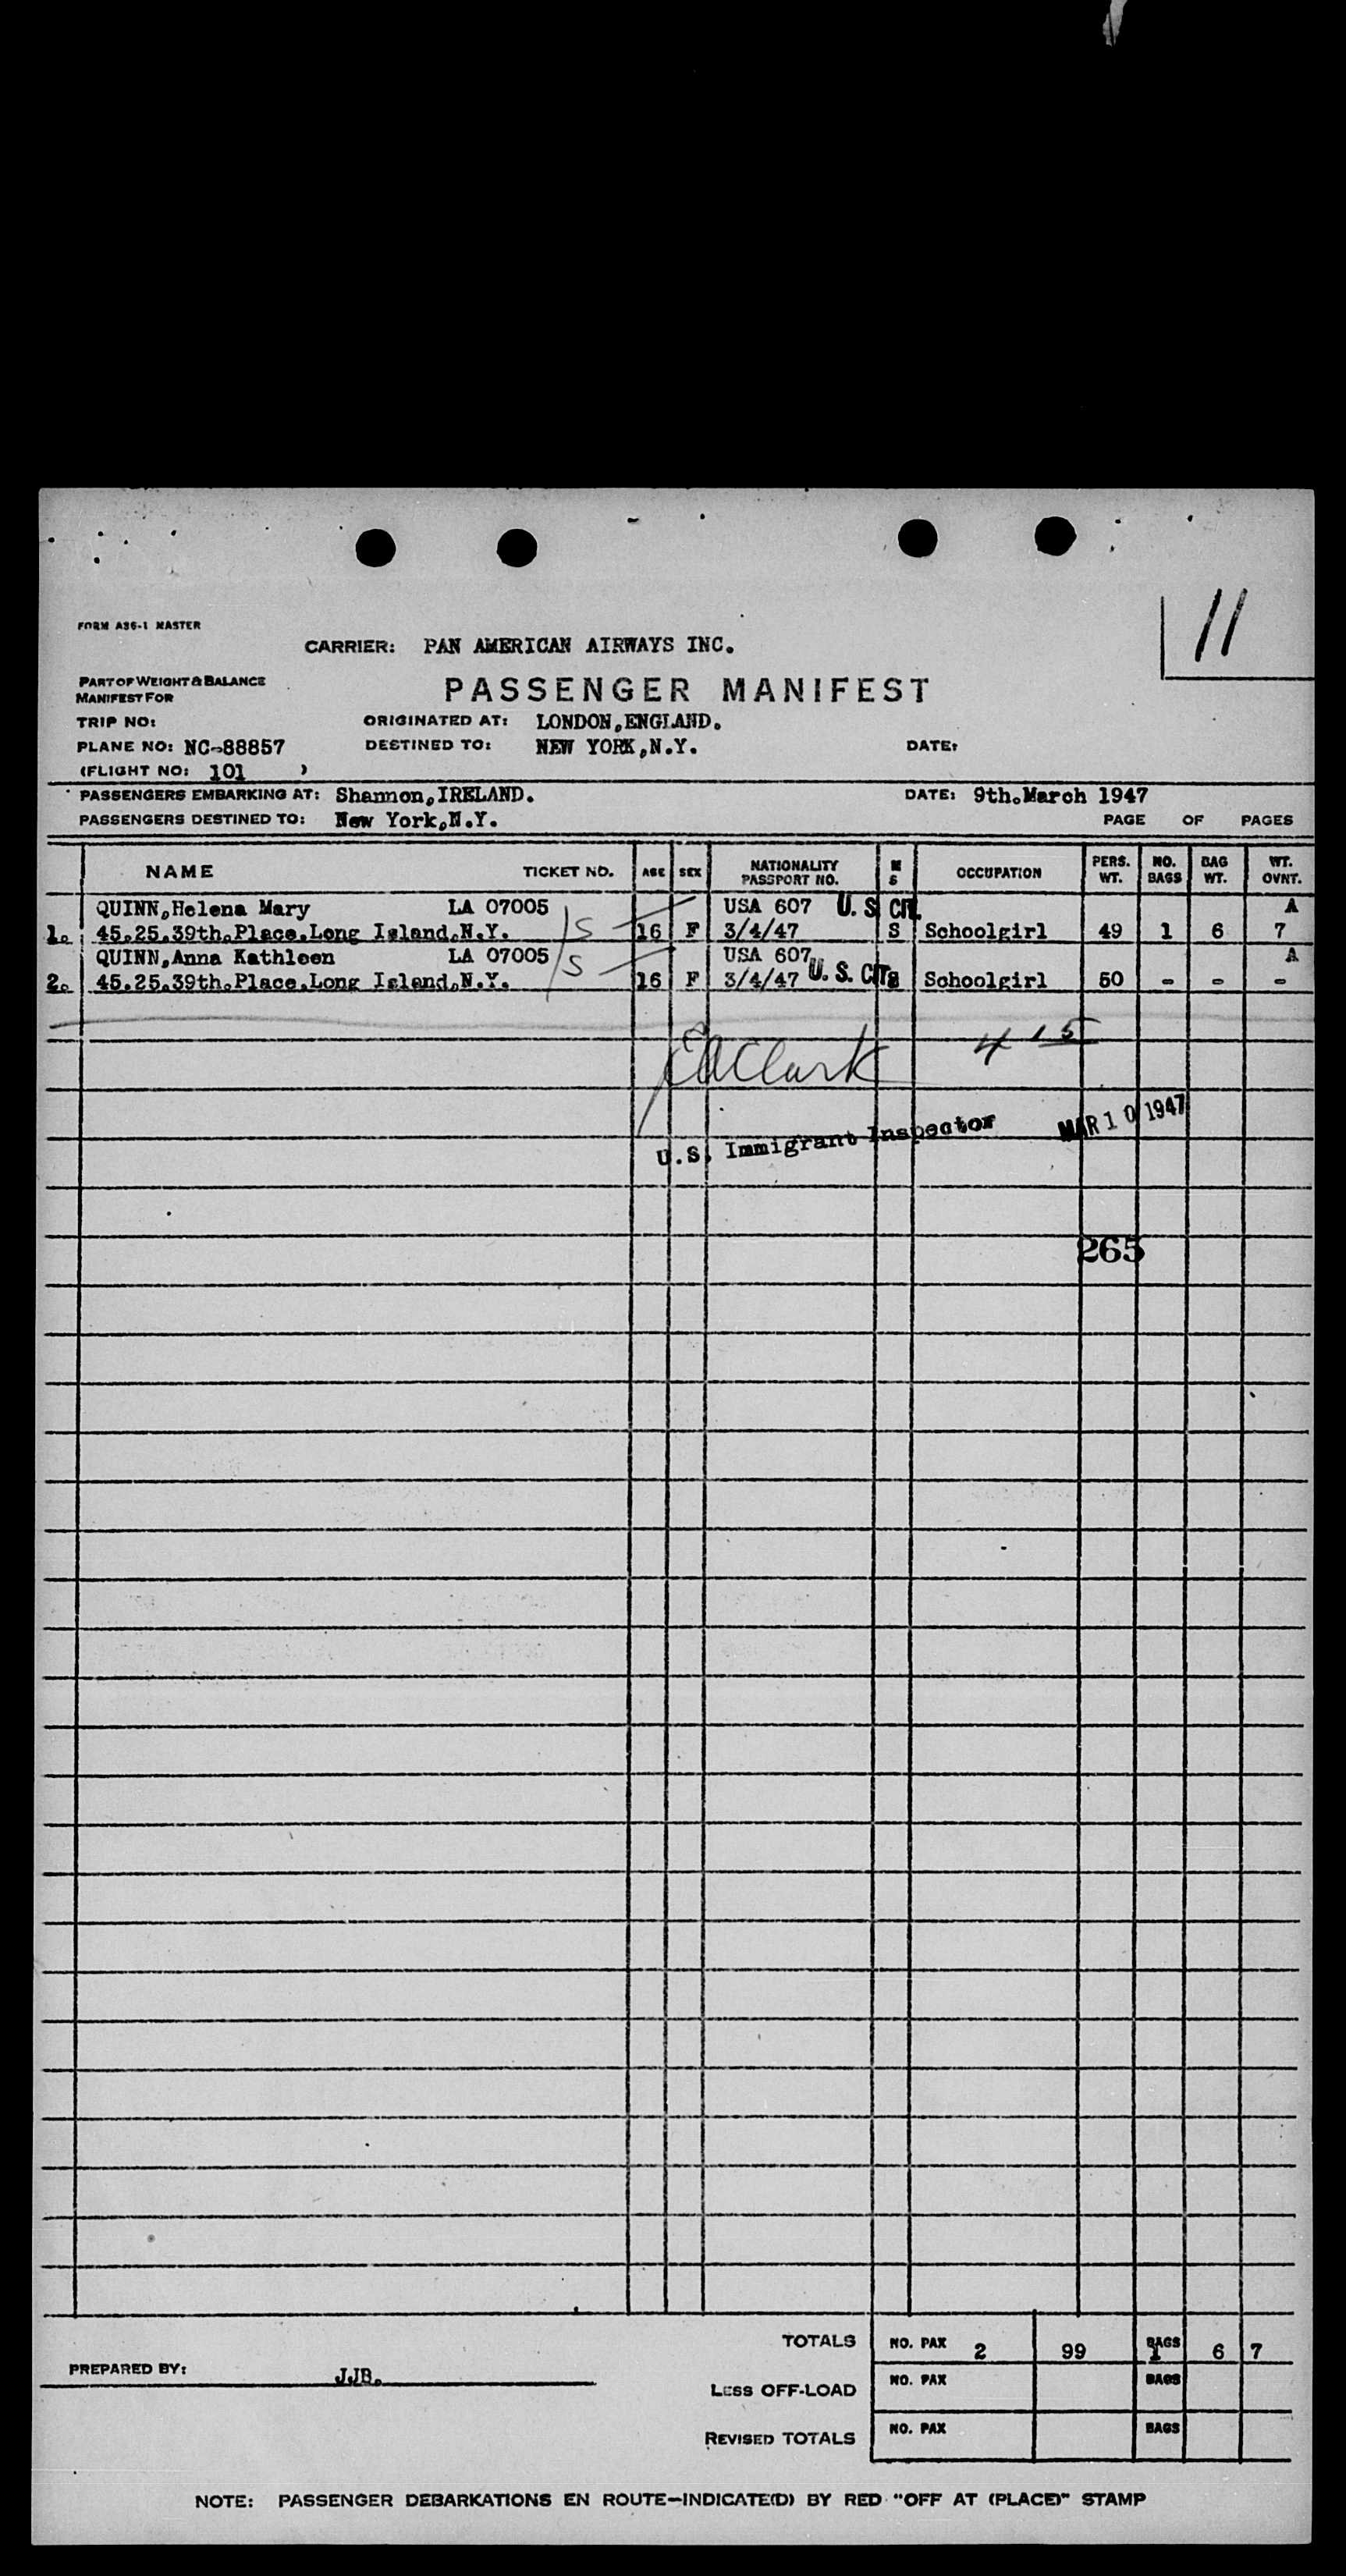 11
FORM A36-1 MASTER
CARRIER: PAN AMERICAN AIRWAYS INC.
PART OF WEIGHT & BALANCE
MANIFEST FOR
PASSENGER MANIFEST
TRIP NO: ORIGINATED AT: LONDON,ENGLAND.
PLANE NO: NC-88857 DESTINED TO: NEW YORK,N.Y. DATE:
(FLIGHT NO: 101 )
PASSENGERS EMBARKING AT: Shannon,IRELAND. DATE: 9th.March 1947
PASSENGERS DESTINED TO: New York,N.Y. PAGE OF PAGES
NAME TICKET NO. AGE SEX NATIONALITY PASSPORT NO. M S OCCUPATION PERS. WT. NO. BAGS BAG WT. WT. OVNT.
QUINN,Helena Mary LA 07005 USA 607 U. S. CIT. A
1. 45.25.39th.Place.Long Island.N.Y. S 16 F 3/4/47 S Schoolgirl 49 1 6 7
QUINN,Anna Kathleen LA 07005 USA 607 A
2. 45.25.39th.Place.Long Island.N.Y. S 16 F 3/4/47 U. S. CIT. S Schoolgirl 50 - - -
EA Clark 4 15
U.S. Immigrant Inspector MAR 10 1947
265
TOTALS NO. PAX 2 99 BAGS 1 6 7
PREPARED BY: JJB.
LESS OFF-LOAD NO. PAX BAGS
REVISED TOTALS NO. PAX BAGS
NOTE: PASSENGER DEBARKATIONS EN ROUTE—INDICATE(D) BY RED "OFF AT (PLACE)" STAMP